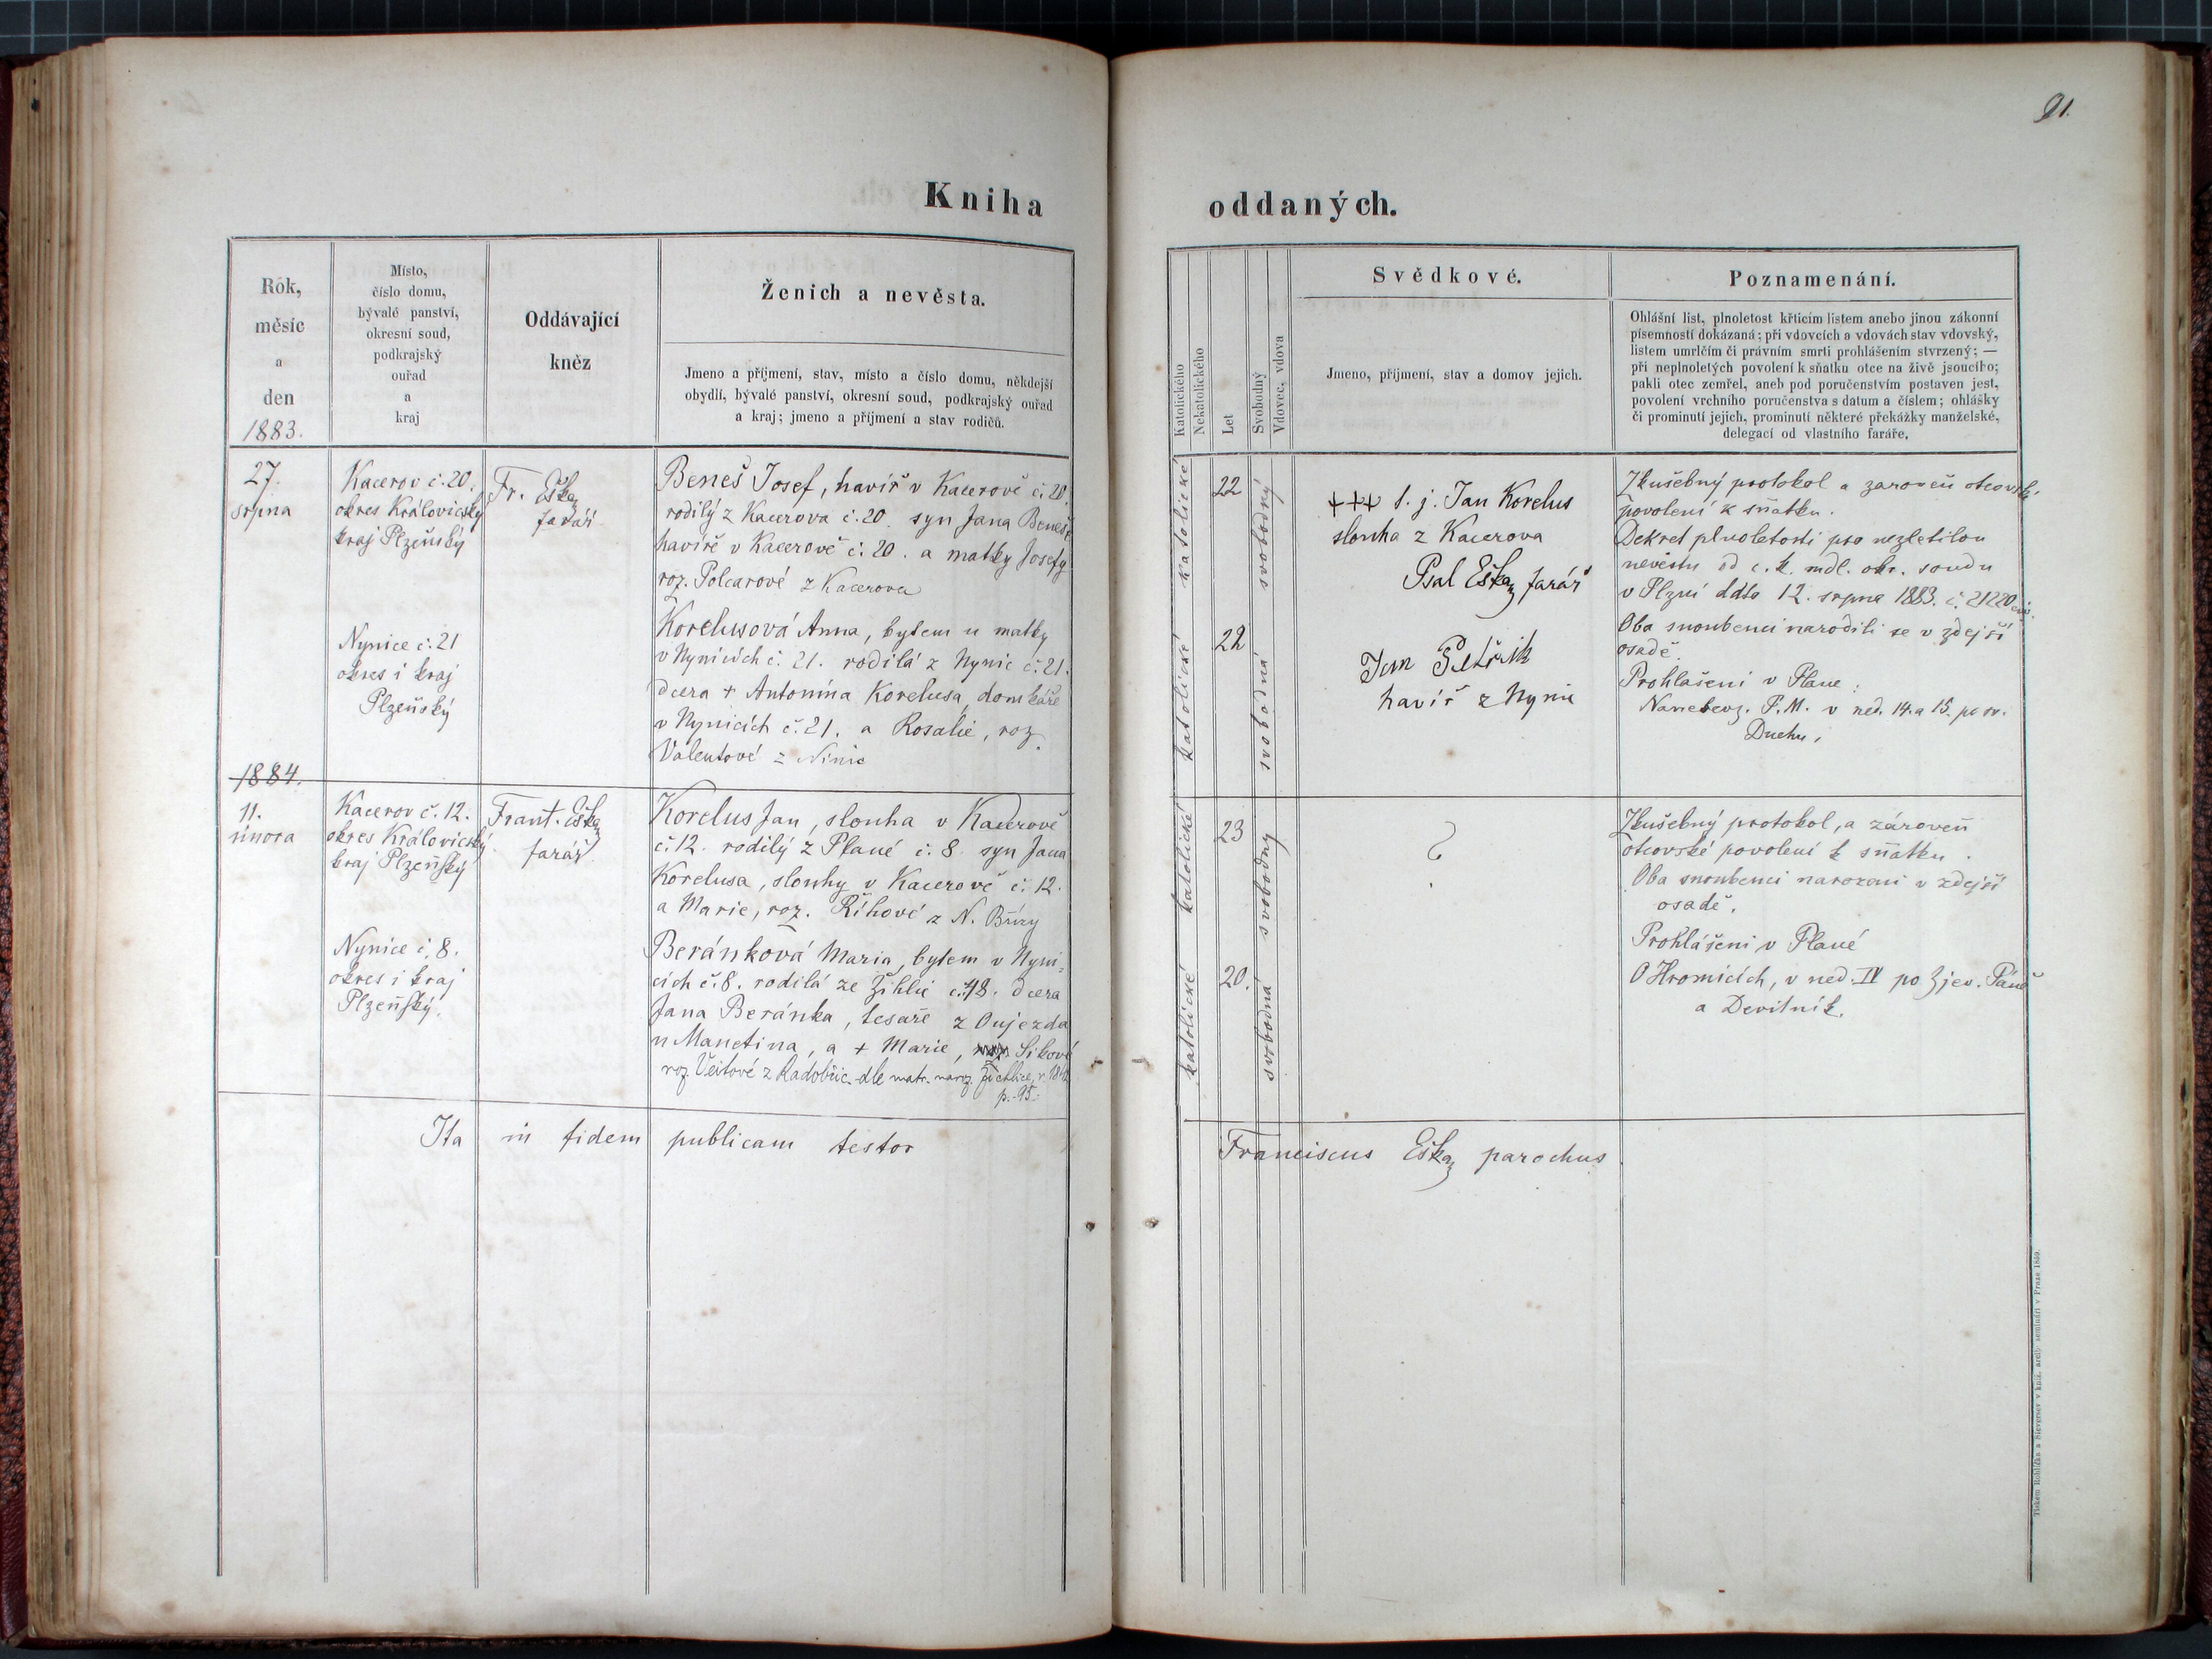 91.
Kniha
oddaných.
Rok,
měsíc
a
den
1883.
Místo,
číslo domu,
bývalé panství,
okresní soud,
podkrajský
ouřad
a
kraj
Oddávající
kněz
Ženich a nevěsta.
Jmeno a příjmení, stav, místo a číslo domu, někdejší
obydlí, bývalé panství, okresní soud, podkrajský ouřad
a kraj; jmeno a příjmení a stav rodičů.
Katolického
Nekatolického
Let
Svobodný
Vdovec, vdova
Svědkové.
Jmeno, příjmení, stav a domov jejich.
Poznamenání.
Ohlášní list, plnoletost křticím listem anebo jinou zákonní
písemností dokázaná; při vdovcích a vdovách stav vdovský,
listem umrlčím či právním smrti prohlášením stvrzený; —
při neplnoletých povolení k sňatku otce na živě jsoucího;
pakli otec zemřel, aneb pod poručenstvím postaven jest,
povolení vrchního poručenstva s datum a číslem; ohlášky
či prominutí jejich, prominutí některé překážky manželské,
delegací od vlastního faráře.
27.
srpna
Kacerov č. 20.
okres Královický
kraj Plzeňský
Fr. Eška
farář
Beneš Josef, havíř v Kacerově č. 20
rodilý z Kacerova č. 20. syn Jana Beneše
havíře v Kacerově č. 20. a matky Josefy
roz. Polcarové z Kacerova
Nynice č. 21
okres i kraj
Plzeňský
Korelusová Anna, bytem u matky
v Nynicích č. 21. rodilá z Nynic č. 21.
dcera + Antonína Korelusa, domkáře
v Nynicích č. 21. a Rosalie, roz.
Valentové z Ninic
katolické
22
svobodný
katolické
22
svobodná
+++ t. j. Jan Korelus
slouha z Kacerova
Psal Eška farář
Jan Petřik
havíř z Nynic
Zkušebný protokol a zaroveň otcovské
povolení k sňatku.
Dekret plnoletosti pro nezletilou
nevěstu od c. k. mdl. okr. soudu
v Plzni ddto 12. srpna 1883. č. 21220
Oba snoubenci narodili se v zdejší
osadě.
Prohlašeni v Plane:
P. M. v ned. 14. a 15. po sv.
Duchu,
1884.
11.
února
Kacerov č. 12.
okres Královický
kraj Plzeňský
Frant. Eška
farář
Korelus Jan, slouha v Kacerově
č. 12. rodilý z Plané č. 8. syn Jana
Korelusa, slouhy v Kacerově č. 12.
a Marie, roz. Říhové z N. Břízy
Nynice č. 8.
okres i kraj
Plzeňský.
Beránková Maria, bytem v Nyni-
cích č. 8. rodilá ze Žihlic č. 48. dcera
Jana Beránka, tesaře z Oujezda
u Manetina, a + Marie, Sikové
roz. Veitové z Radobřic dle matr. naroz.
p. 95.
katolické
23
svobodny
katolické
20.
svobodná
?
Zkušebný protokol, a zároveň
otcovské povolení k sňatku.
Oba snoubenci narozeni v zdejší
osadě.
Prohlášeni v Plané
O Hromicích, v ned. IV po Zjev. Páně
a Devitník.
Ita in fidem publicam testor
Franciscus Eška parochus
Tiskem Rohlíčka a Sieversev v kníž. arcib. semináři v Praze 1869.